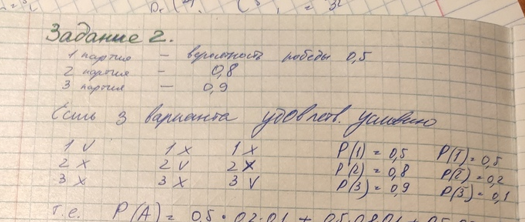 Задание 2.
1 партия — вероятность победы 0,5
2 партия — 0,8
3 партия — 0,9
Есть 3 варианта удовлетв. условию
1 V 1 X 1 X P(1) = 0,5 P(1̅) = 0,5
2 X 2 V 2 X P(2) = 0,8 P(2̅) = 0,2
3 X 3 X 3 V P(3) = 0,9 P(3̅) = 0,1
Т.е. P(A) = 0,5 · 0,2 · 0,1 + 0,5 · 0,8 · 0,1 +